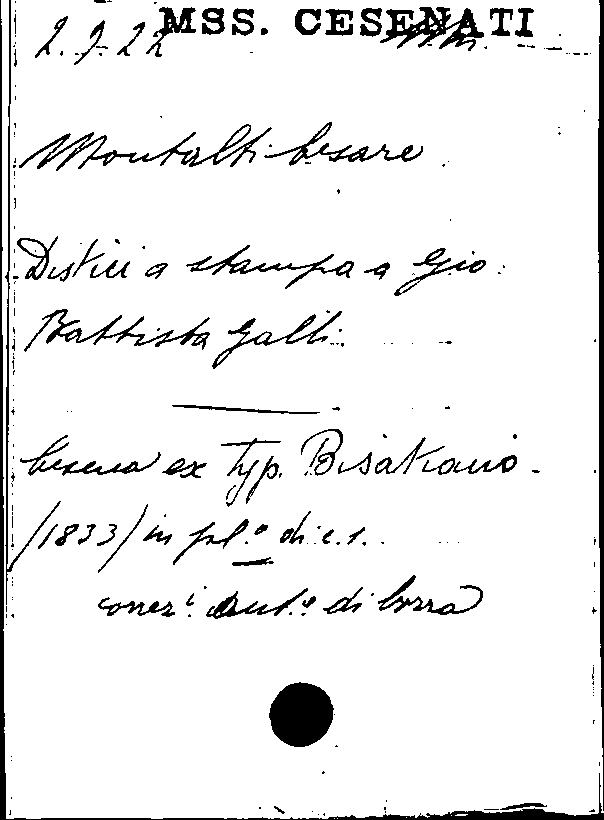 MSS. CESENATI
2.7.22
Montalti Cesare
Distici a stampa a Gio:
Battista Galli.
Cesena ex Typ. Bisazia
/1833/ in fol.º di c. 1.
con di